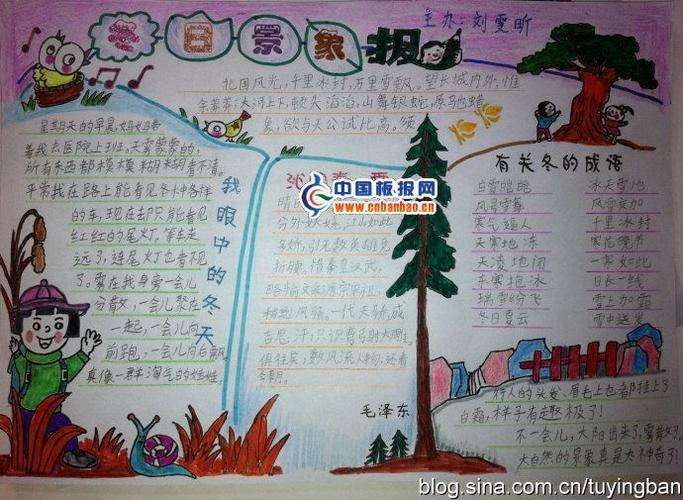 冬日景象报
主办:刘雯昕
北国风光,千里冰封,万里雪飘。望长城内外,惟
余莽莽;大河上下,顿失滔滔,山舞银蛇,原驰蜡
象,欲与天公试比高。须
星期天的早晨,妈妈带
着我去医院上班。天雾蒙蒙的,
所有东西都模模糊糊看不清。
平常我在路上能看见各种各样
的车,现在却只能看见
红红的尾灯。等车走
远了,连尾灯也看不见
了。雾在我身旁一会儿
分散,一会儿聚在
一起,一会儿向
前跑,一会儿向后飘
真像一群淘气的娃娃。
我眼中的冬天
沁园春 雪
中国板报网
www.cnbanbao.cn
分外妖娆。江山如此
多娇,引无数英雄竞
折腰。惜秦皇汉武,
略输文采;唐宗宋祖,
稍逊风骚。一代天骄,成
吉思汗,只识弯弓射大雕。
俱往矣,数风流人物,还看
今朝。
毛泽东
有关冬的成语
白雪皑皑 冰天雪地
风号雪舞 风雪交加
寒气逼人 千里冰封
天寒地冻 寒花晚节
天凌地闭 一寒如此
天寒抱冰 日长一线
瑞雪纷飞 雪上加霜
冬日夏云 雪中送炭
行人的头发、眉毛上也都挂上了
白霜,样子有趣极了!
不一会儿,太阳出来了,雾散了。
大自然的景象真是太神奇了!
blog.sina.com.cn/tuyingban